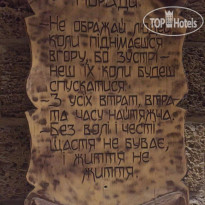 ПОРАДИ.
TOP HOTELS
-НЕ ОБРАЖАЙ
КОЛИ ПІДНІМАЄШСЯ
ВГОРУ, БО ЗУСТРІ-
НЕШ ЇХ КОЛИ БУДЕШ
СПУСКАТИСЯ.
-З УСІХ ВТРАТ, ВТРА-
ТА ЧАСУ НАЙТЯЖЧА.
-БЕЗ ВОЛІ І ЧЕСТІ
ЩАСТЯ НЕ БУВАЄ,
І ЖИТТЯ НЕ
ЖИТТЯ.